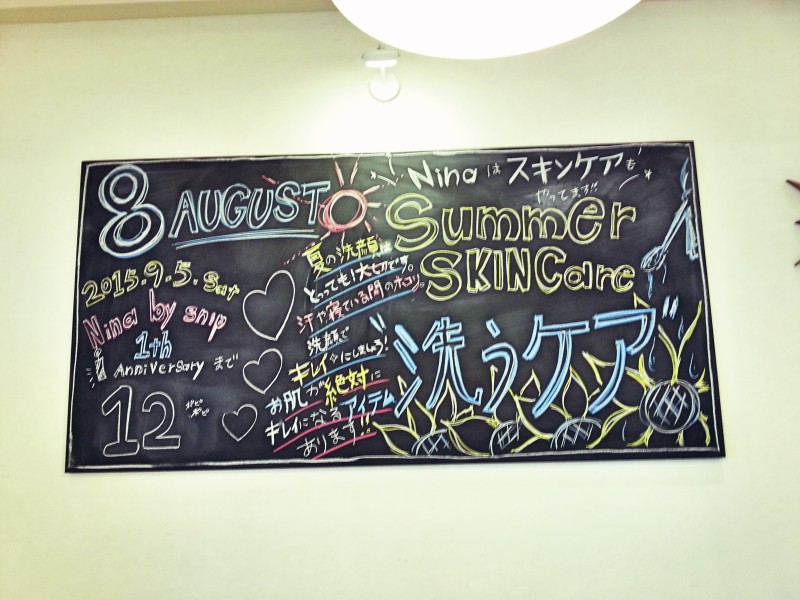 8 AUGUST
2015.9.5.sat
Nina by snip
1th
Anniversary まで
12
夏の洗顔は
とっても!大切です。
汗や寝ている間のホコリ。
洗顔で
キレイにしましょう!
お肌が絶対に
キレイになるアイテム
あります!!
Nina は スキンケアも
やってます!!
Summer
SKINCare
“洗うケア”